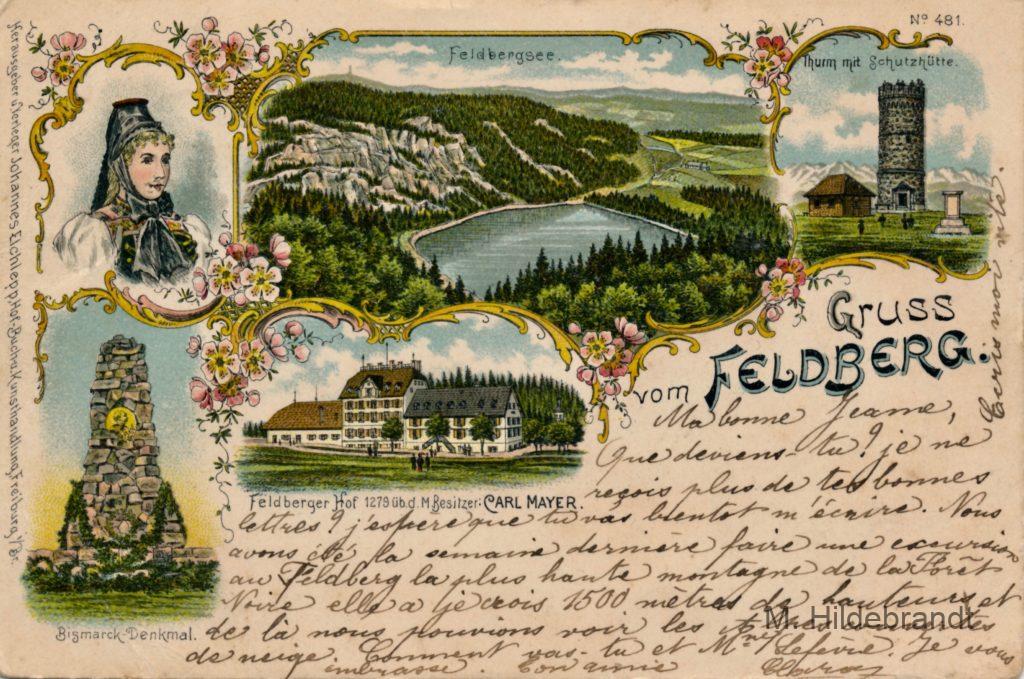 Nº 481.
Feldbergsee.
Thurm mit Schutzhütte.
Herausgeber u. Verleger Johannes Elchlepp, Hof-Buch- u. Kunsthandlung, Freiburg i/B.
Gruss
vom FELDBERG.
Feldberger Hof 1279 üb. d. M. Besitzer: CARL MAYER.
Bismarck-Denkmal.
Ma bonne Jeanne,
Que deviens-tu? je ne
reçois plus de tes bonnes
lettres? j'espère que tu vas bientot m'écrire. Nous
avons été la semaine dernière faire une excursion
au Feldberg la plus haute montagne de la Forêt
Noire elle a je crois 1500 mètres de hauteurs et
de là nous pouvions voir les
de neige. Comment vas-tu et Mme Lefèvre. Je vous
embrasse. Ton amie
Ecris moi vite.
M. Hildebrandt